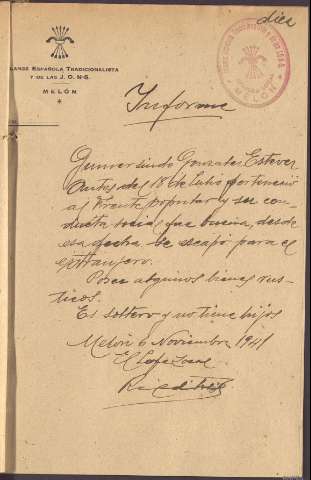 diez
LANGE ESPAÑOLA TRADICIONALISTA
Y DE LAS J. O. N-S.
MELÓN
MELÓN
Informe
Gumersindo Gonzalez Estevez
Antes del 18 de Julio pertenecio
al Frente popular y su con
ducta social fue buena, desde
esa fecha se escapó para el
extranjero.
Posee algunos bienes rus
ticos.
Es soltero y no tiene hijos
Melón 6 Noviembre 1941
El Jefe Local